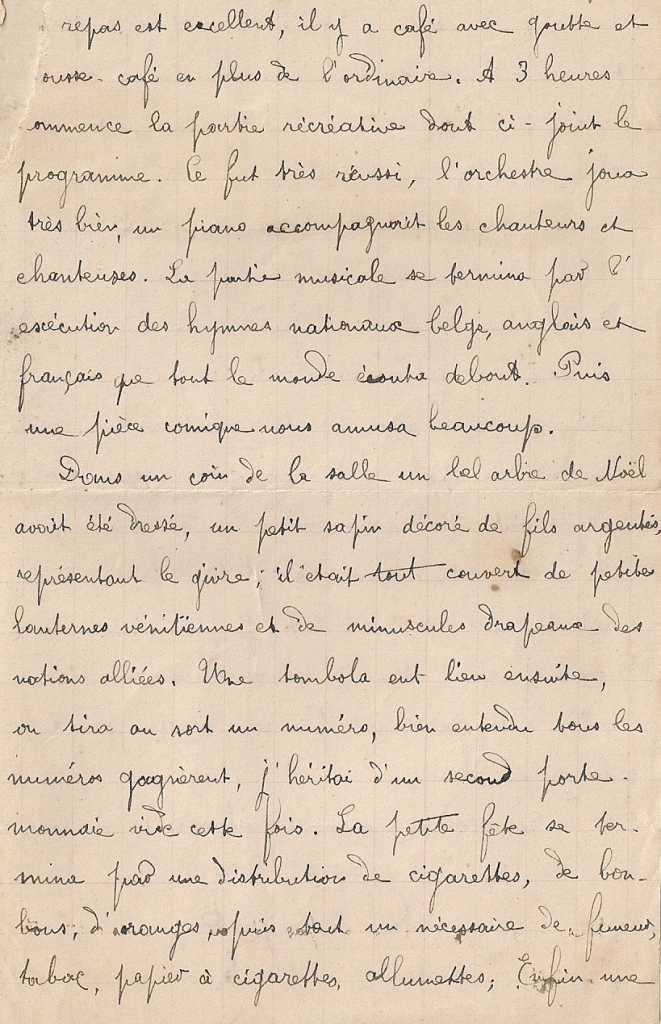 repas est excellent, il y a café avec goutte et
ousse-café en plus de l'ordinaire. A 3 heures
ommence la partie récréative dont ci-joint le
programme. Ce fut très réussi, l'orchestre joua
très bien, un piano accompagnait les chanteurs et
chanteuses. La partie musicale se termina par l'
exécution des hymnes nationaux belge, anglais et
français que tout le monde écouta debout. Puis
une pièce comique nous amusa beaucoup.
Dans un coin de la salle un bel arbre de Noël
avait été dressé, un petit sapin décoré de fils argentés,
représentant le givre; il était tout couvert de petites
lanternes vénitiennes et de minuscules drapeaux des
nations alliées. Une tombola eut lieu ensuite,
on tira au sort un numéro, bien entendu tous les
numéros gagnèrent, j'héritai d'un second porte-
monnaie vide cette fois. La petite fête se ter-
mina par une distribution de cigarettes, de bon-
bons, d'oranges, puis tout un nécessaire de fumeur,
tabac, papier à cigarettes, allumettes; Enfin une